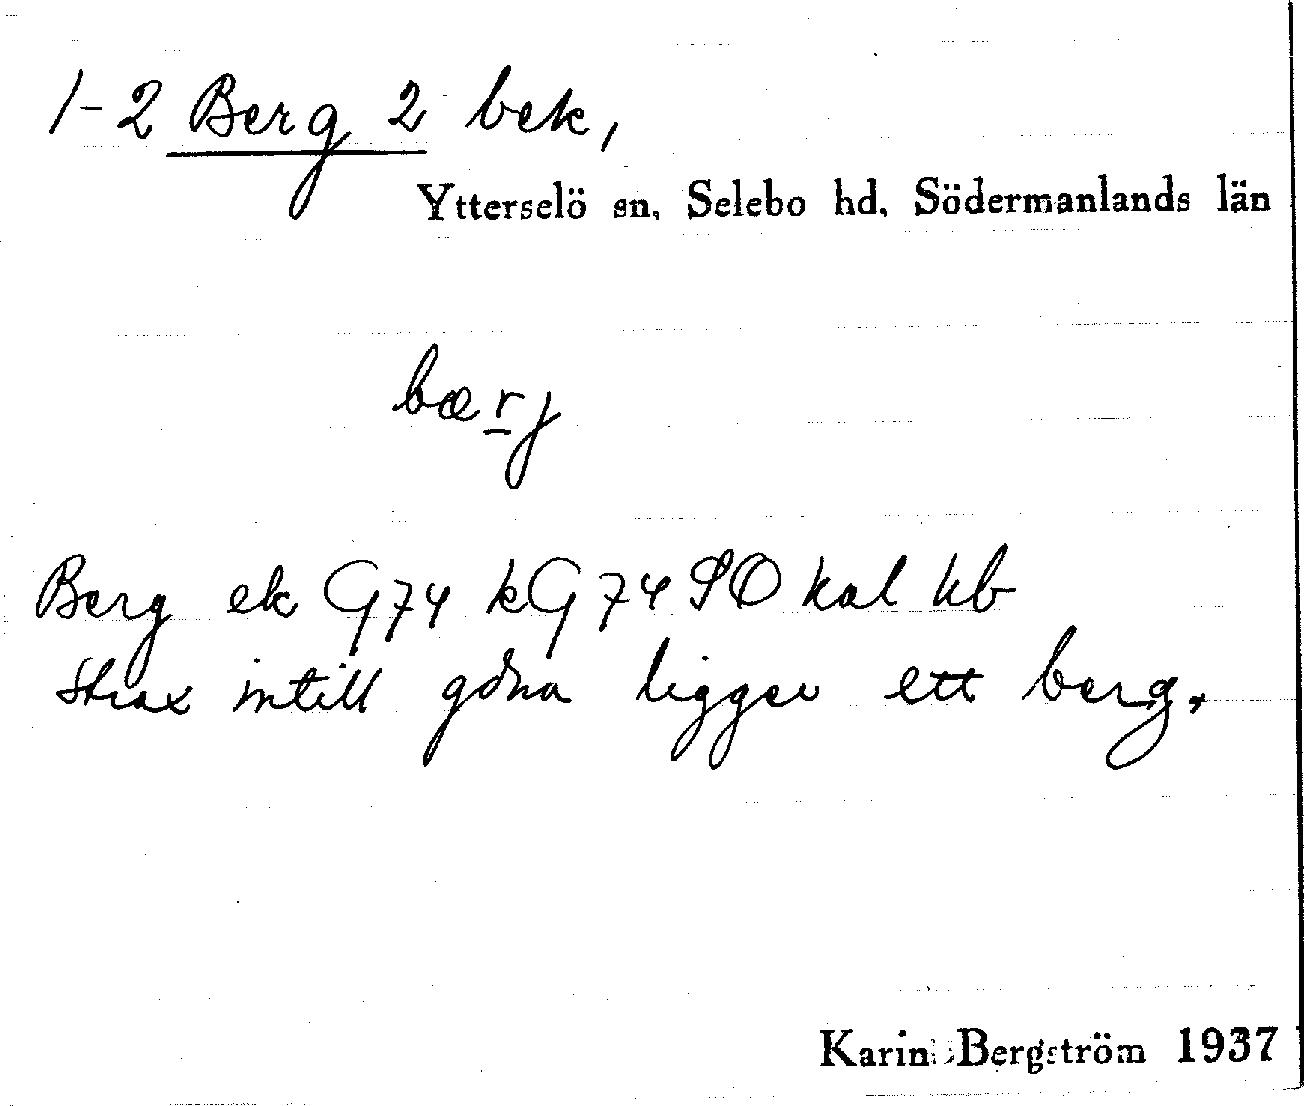 1-2 Berg 2 bek,
Ytterselö sn, Selebo hd, Södermanlands län
bærj
Berg ek G74 kG74 SO kal kb
Strax intill gdna ligger ett berg.
Karin Bergström 1937